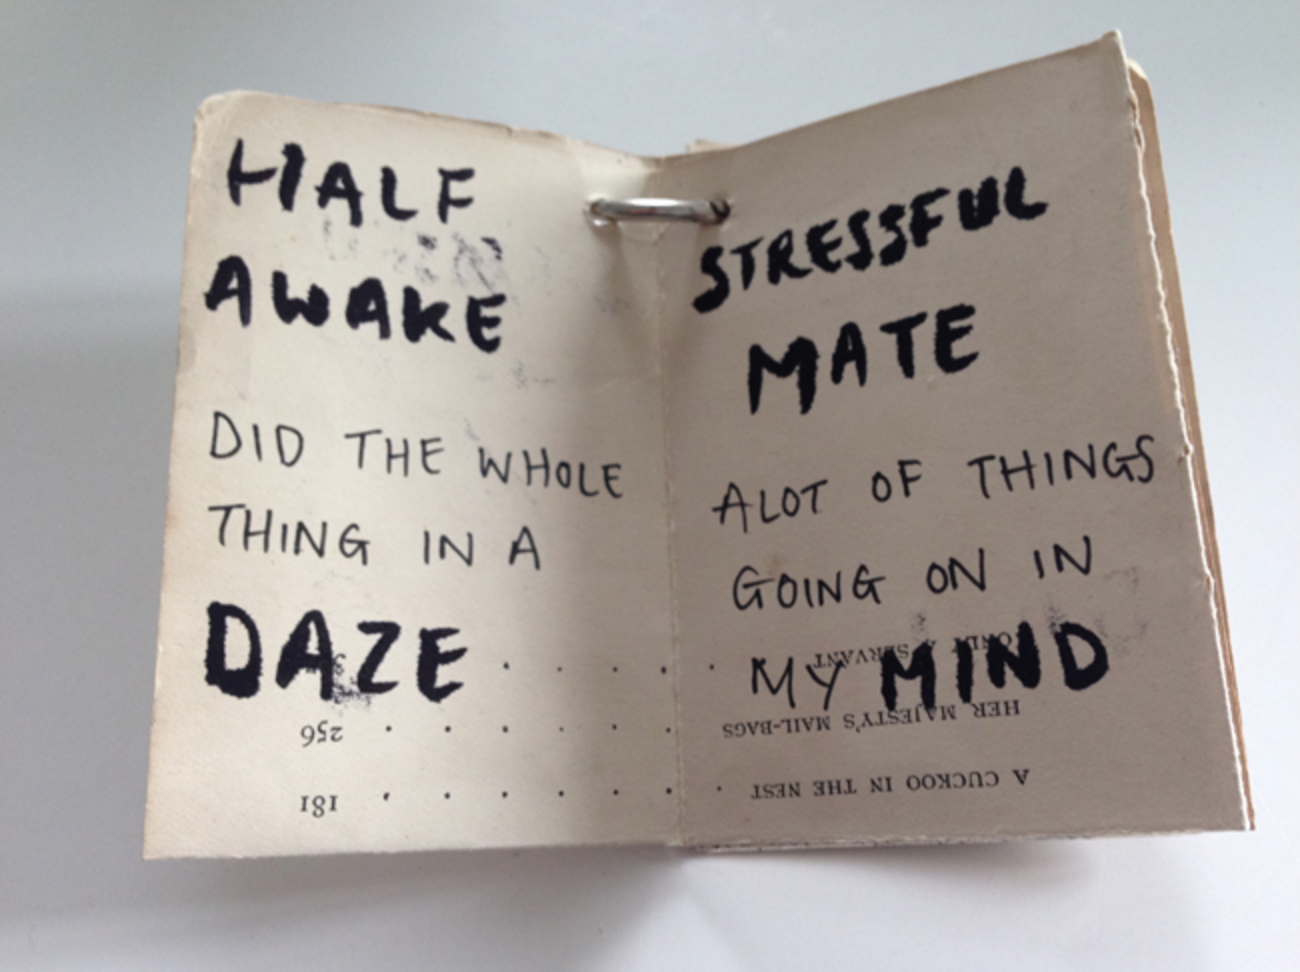 HALF
AWAKE
DID THE WHOLE
THING IN A
DAZE
STRESSFUL
MATE
ALOT OF THINGS
GOING ON IN
MY MIND
A CUCKOO IN THE NEST . . . . . . . 181
HER MAJESTY'S MAIL-BAGS . . . . . . 256
ONLY A SERVANT . . . . .